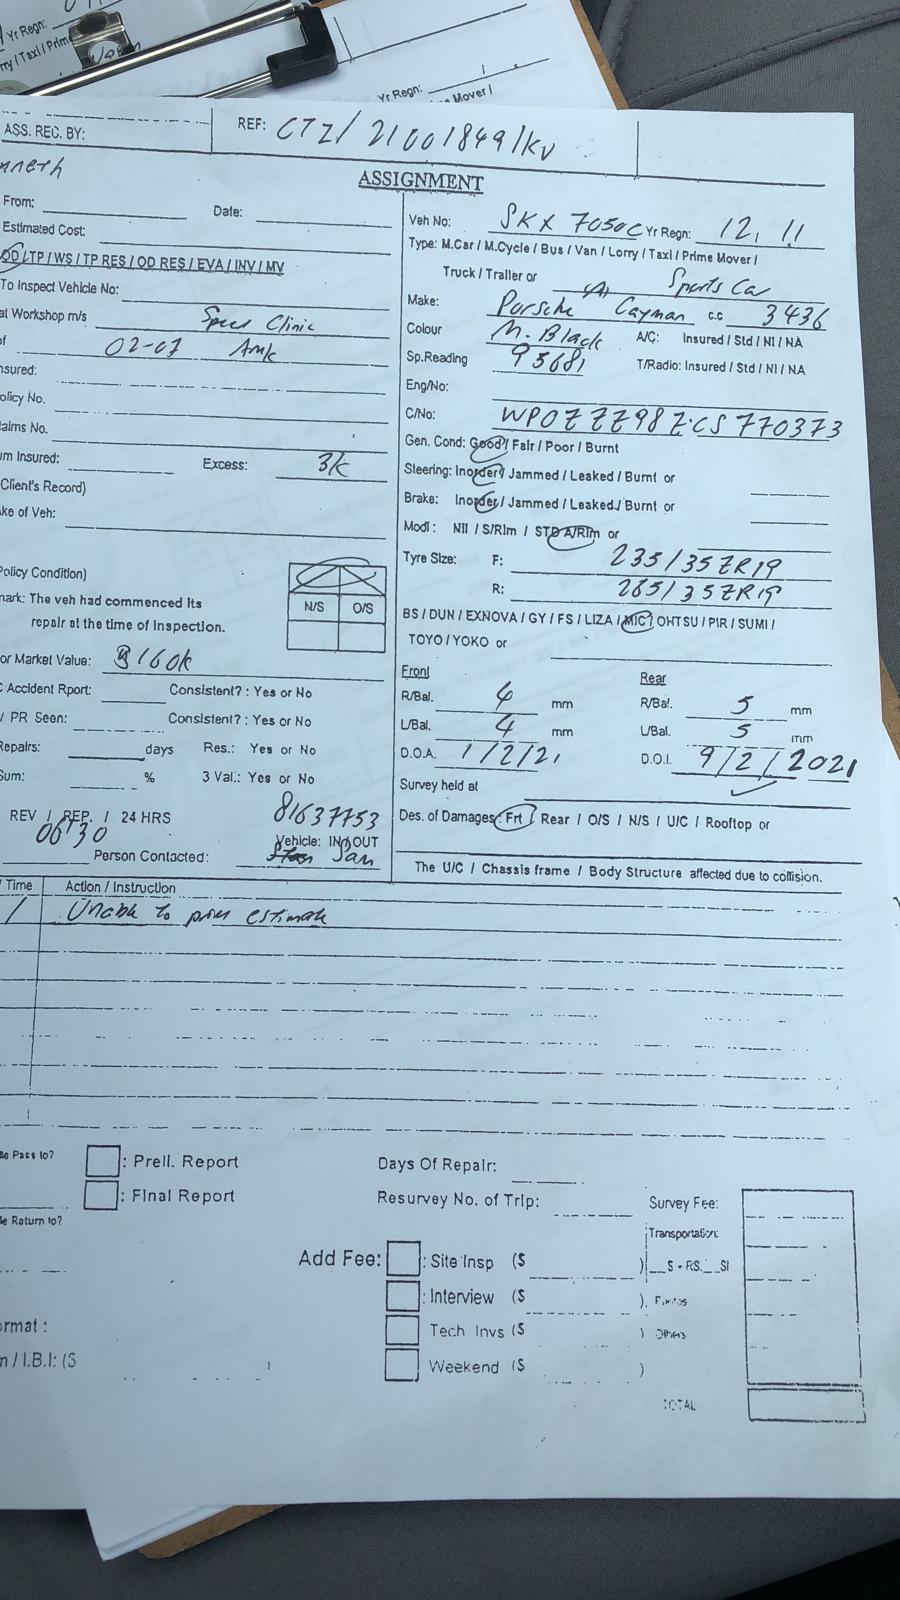 Yr Regn:
rry / Taxi / Prime
Yr Regn:
Mover /
ASS. REC. BY:
REF: CTZ/ 21001849/KV
nneth
ASSIGNMENT
From: Date:
Estimated Cost:
OD / TP / WS / TP RES / OD RES / EVA / INV / MV
To Inspect Vehicle No:
at Workshop m/s Spec Clinic
of 02-07 Amk
nsured:
olicy No.
laims No.
um Insured: Excess: 3k
Client's Record)
ake of Veh:
Policy Condition)
N/S O/S
mark: The veh had commenced its
repair at the time of inspection.
or Market Value: $160k
C Accident Rport: Consistent? : Yes or No
/ PR Seen: Consistent? : Yes or No
Repairs: days Res.: Yes or No
Sum: % 3 Val.: Yes or No
REV / REP. / 24 HRS 81637753
06730 Vehicle: IN / OUT
Person Contacted: San
Veh No: SKX 7050C Yr Regn: 12, 11
Type: M.Car / M.Cycle / Bus / Van / Lorry / Taxi / Prime Mover /
Truck / Trailer or Sports Car
Make: Porsche Cayman c.c 3436
Colour M. Black A/C: Insured / Std / NI / NA
Sp.Reading 95681 T/Radio: Insured / Std / NI / NA
Eng/No:
C/No: WP0ZZZ98Z CS 770373
Gen. Cond: Good / Fair / Poor / Burnt
Steering: Inorder / Jammed / Leaked / Burnt or
Brake: Inorder / Jammed / Leaked / Burnt or
Modi : Nil / S/Rim / STD A/Rim or
Tyre Size: F: 235/35ZR19
R: 265/35ZR19
BS / DUN / EXNOVA / GY / FS / LIZA / MIC / OHTSU / PIR / SUMI /
TOYO / YOKO or
Front Rear
R/Bal. 4 mm R/Bal. 5 mm
L/Bal. 4 mm L/Bal. 5 mm
D.O.A. 1/2/21 D.O.I. 9/2/2021
Survey held at
Des. of Damages: Frt / Rear / O/S / N/S / U/C / Rooftop or
The U/C / Chassis frame / Body Structure affected due to collision.
/ Time Action / Instruction
/ Unable to estimate
Pass to? : Preli. Report Days Of Repair:
: Final Report Resurvey No. of Trip: Survey Fee:
Return to? Transportation:
Add Fee: : Site Insp ($ ) S + RS. SI
: Interview ($ )
ormat : Tech Invs ($ ) Others
n / I.B.I: ($ ) Weekend ($ )
TOTAL